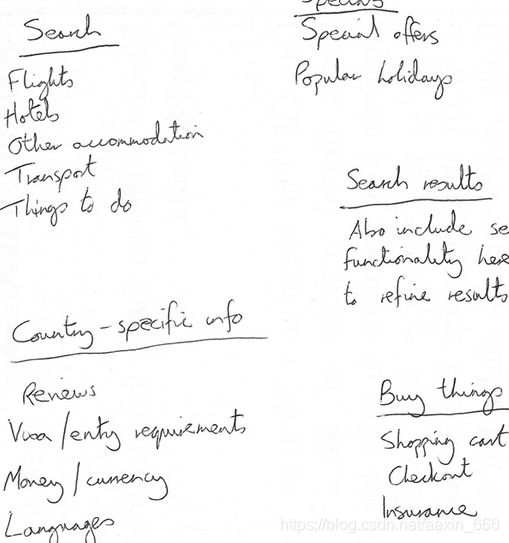 Search
Flights
Hotels
Other accommodation
Transport
Things to do
Special offers
Popular holidays
Search results
Also include se
functionality here
to refine results
Country-specific info
Reviews
Visa/entry requirements
Money/currency
Languages
Buy things
Shopping cart
Checkout
Insurance
https://blog.csdn.net/aaxin_666